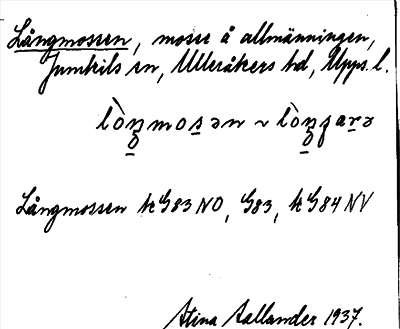 Långmossen, mosse å allmänningen,
Jumkils sn, Ulleråkers hd, Upps. l.
lòŋmosən ~ lòŋgarə
Långmossen k G83 NO, G83, k G84 NV
Stina Aallander 1937.